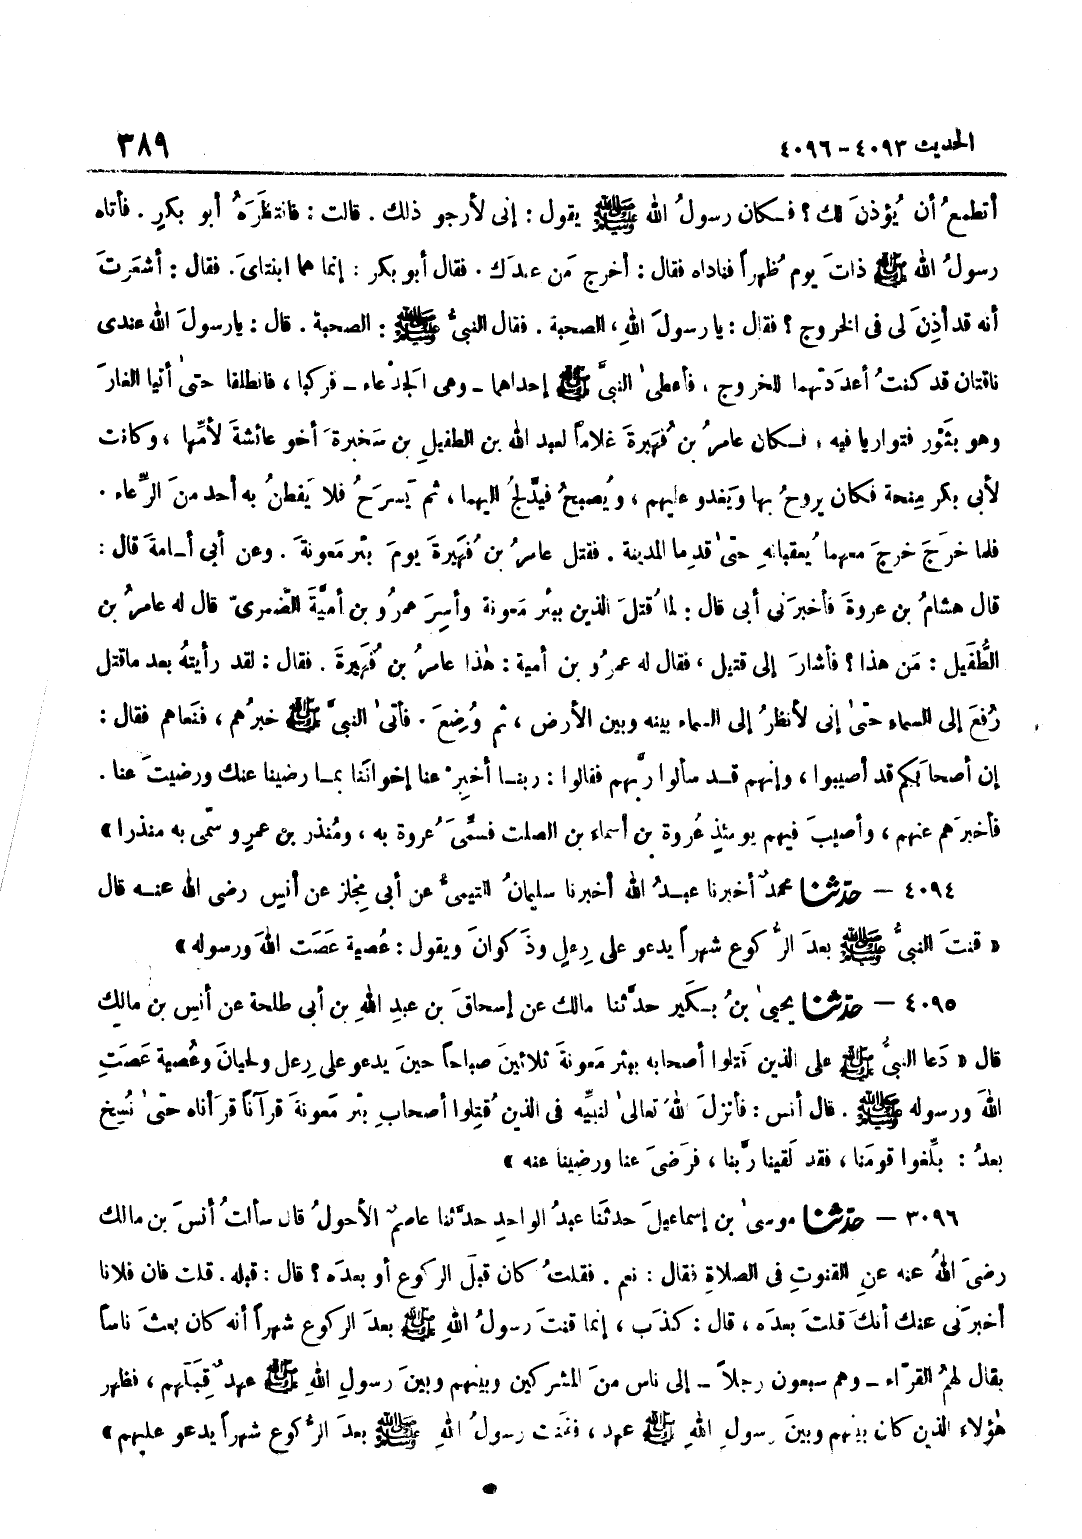 الحديث ٤٠٩٣ - ٤٠٩٦ ٣٨٩
أتطمعُ أن يُؤذنَ لك؟ فكان رسولُ الله ﷺ يقول: إنى لأرجو ذلك. قالت: فانتظَرَهُ أبو بكرٍ. فأتاه
رسولُ الله ﷺ ذاتَ يوم ظُهراً فناداه فقال: أخرج مَن عندَك. فقال أبو بكر: إنما هما ابنتاىَ. فقال: أشعَرتَ
أنه قد أذِنَ لى فى الخروج؟ فقال: يا رسولَ اللهِ، الصحبة. فقال النبىُّ ﷺ: الصحبة. قال: يارسولَ الله عندى
ناقتان قد كنتُ أعدَدتهما للخروج. فأعطىٰ النبىَّ ﷺ إحداهما – وهى الجدْعاء – فركبا، فانطلقا حتىٰ أتيا الغارَ
وهو بثَوْر فتواريا فيه، فكان عامرُ بن فُهَيرةَ غلاماً لعبد الله بن الطفيلِ بن سَخبرةَ أخو عائشةَ لأمِّها، وكانت
لأبى بكر مِنحة فكان يروحُ بها ويَغدو عليهم، ويُصبحُ فيدَّلِجُ إليهما، ثم يَسرَحُ فلا يَفطنُ به أحد منَ الرِّعاء.
فلما خرَجَ خرجَ معهما يُعقبانهِ حتىٰ قدِما المدينة. فقتل عامرُ بن فُهَيرةَ يومَ بئر مَعونةَ. وعن أبى أسامةَ قال:
قال هشامُ بن عروةَ فأخبرَنى أبى قال: لما قُتلَ الذين ببئر مَعونة وأسِرَ عمرُو بن أميَّةَ الضَّمرىّ قال له عامرُ بن
الطُّفَيل: مَن هذا؟ فأشارَ إلى قتيل، فقال له عمرُو بن أمية: هٰذا عامرُ بن فُهَيرةَ. فقال: لقد رأيتهُ بعد ماقتل
رُفعَ إلى السماء حتىٰ إنى لأنظرُ إلى السماء بينه وبين الأرض، ثم وُضِعَ. فأتىٰ النبىَّ ﷺ خبرُهم، فنَعاهم فقال:
إن أصحابَكم قد أصيبوا، وإنهم قد سألوا ربَّهم فقالوا: ربنا أخبِرْ عنا إخوانَنا بما رضينا عنك ورضيتَ عنا.
فأخبرَهم عنهم، وأصيبَ فيهم يومئذٍ عُروة بن أسماء بن الصلت فسمَّىَ عُروة به، ومُنذر بن عمرٍو سمّى به منذرا»
٤٠٩٤ – حدّثنا محمدٌ أخبرنا عبدُ الله أخبرنا سليمانُ التيمىُّ عن أبى مِجْلز عن أنسٍ رضى الله عنه قال
« قنتَ النبىُّ ﷺ بعدَ الرُّكوع شهراً يدعو على رِعلٍ وذَكوانَ ويقول: عُصية عَصَت اللهَ ورسوله»
٤٠٩٥ – حدّثنا يحيىٰ بنُ بُكَير حدَّثنا مالك عن إسحاقَ بن عبدِ اللهِ بن أبى طلحة عن أنسِ بن مالكٍ
قال « دَعا النبىُّ ﷺ على الذين قَتلوا أصحابه ببئر مَعونةَ ثلاثينَ صباحاً حينَ يدعو على رِعل ولحيانَ وعُصية عَصَتِ
اللهَ ورسوله ﷺ. قال أنس: فأنزلَ اللهُ تعالىٰ لنبيِّه فى الذين قُتِلوا أصحابِ بئر مَعونةَ قرآناً قرَأناه حتىٰ نُسِخ
بعدُ: بلِّغوا قومَنا، فقد لَقينا ربَّنا، فرَضىَ عنا ورضينا عنه »
٣٠٩٦ – حدّثنا موسىٰ بن إسماعيلَ حدثنَا عبدُ الواحدِ حدَّثنا عاصمٌ الأحولُ قال سألتُ أنسَ بن مالك
رضىَ اللهُ عنه عنِ القنوتِ فى الصلاةِ فقال: نعم. فقلتُ كان قبلَ الركوع أو بعدَه؟ قال: قبله. قلت فان فلانا
أخبرَنى عنك أنكَ قلتَ بعدَه، قال: كذَبَ، إنما قنتَ رسولُ اللهِ ﷺ بعدَ الركوع شهراً أنه كان بعثَ ناساً
يقال لهمُ القرّاء – وهم سبعون رجلاً – إلى ناس منَ المشركين وبينهم وبينَ رسولِ اللهِ ﷺ عهدٌ قِبَلَهم، فظهر
هٰؤلاء الذين كان بينهم وبينَ رسولِ اللهِ ﷺ عهد، فقنت رسولُ اللهِ ﷺ بعدَ الرُّكوع شهراً يدعو عليهم»